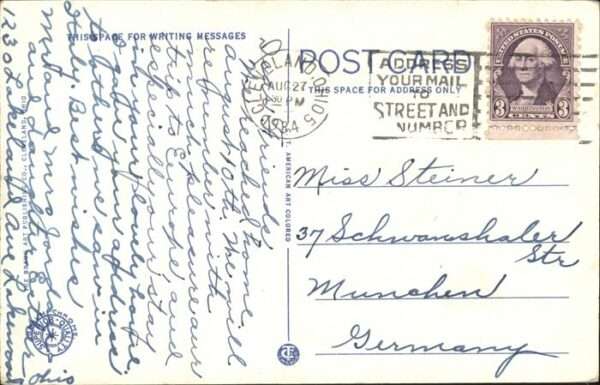 THIS SPACE FOR WRITING MESSAGES
POST CARD
THIS SPACE FOR ADDRESS ONLY
OHIO
AUG 27
PM
1934
ADDRESS
YOUR MAIL
TO
STREET AND
NUMBER
UNITED STATES POSTAGE
WASHINGTON
3 CENTS 3
Dear Friends
We reached home
August 10th. We will
remember with
much pleasure our
trip to Europe, and
especially our stay
in your lovely hotel.
I gave your address
to the one I saw in
Italy. Best wishes
Mr and Mrs Jordan
and daughter Esther
1230 Lakeland Ave Lakewood
Ohio
Miss Steiner
37 Schwanshaler
Str
Munchen
Germany
AMERICAN ART COLORED